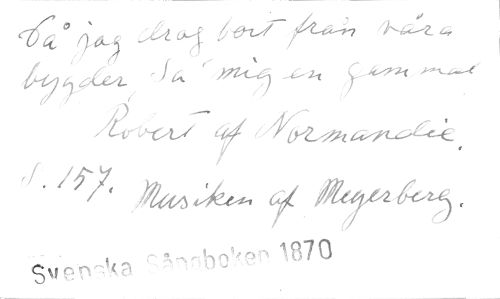 Då jag drog bort från våra
bygder, Sa' mig en gammal
Robert af Normandie.
S. 157. Musiken af Meyerberg.
Svenska Sångboken 1870